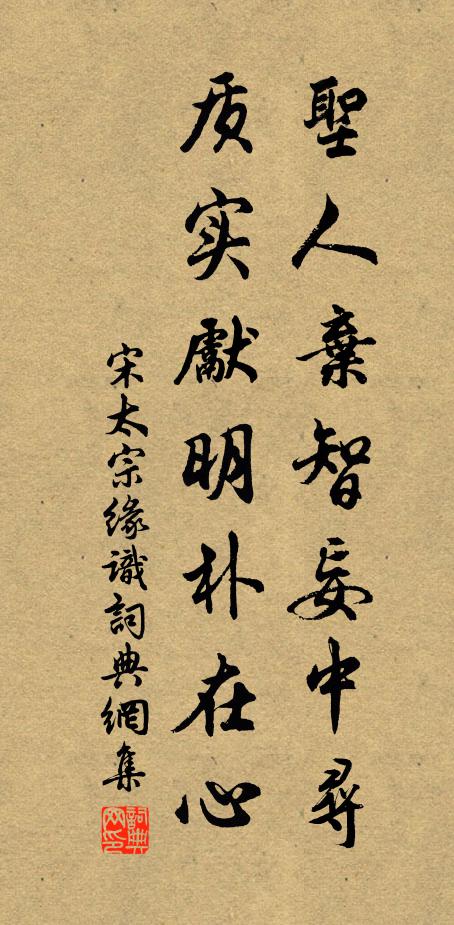 聖人棄智妄中尋
质实獻明朴在心
宋太宗緣識詞典網集
詞典网印